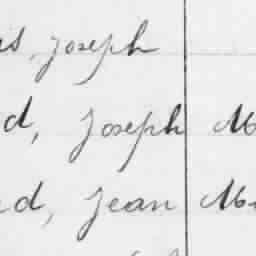 s, Joseph
d, Joseph M
d, Jean M